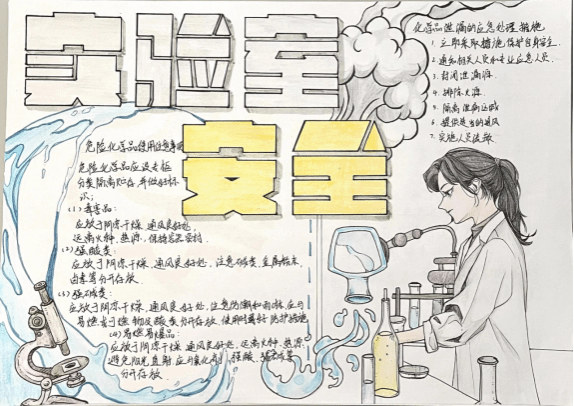 实验室
安全
危险化学品使用注意事项
危险化学品应设专柜
分类隔离贮存,并做好标
示;
(1)毒害品:
应放于阴凉干燥,通风良好处,
远离火种、热源,保持容器密封.
(2)强酸类:
应放于阴凉干燥、通风良好处,注意与碱类、金属粉末、
卤素等分开存放.
(3)强碱类:
应放于阴凉干燥,通风良好处,注意防潮和雨淋,应与
易燃或可燃物及酸类分开存放.
(4)易燃易爆品:
应放于阴凉干燥,通风良好处,远离火种、热源,
避免阳光直射,应与氧化剂、强酸、
分开存放.
化学品泄漏的应急处理措施
1. 立即采取措施,保护自身安全.
2. 通知相关人员和专业应急人员.
3. 封闭泄漏源.
4. 排除火源.
5. 隔离泄漏区域
6. 提供适当的通风
7. 实施人员疏散.